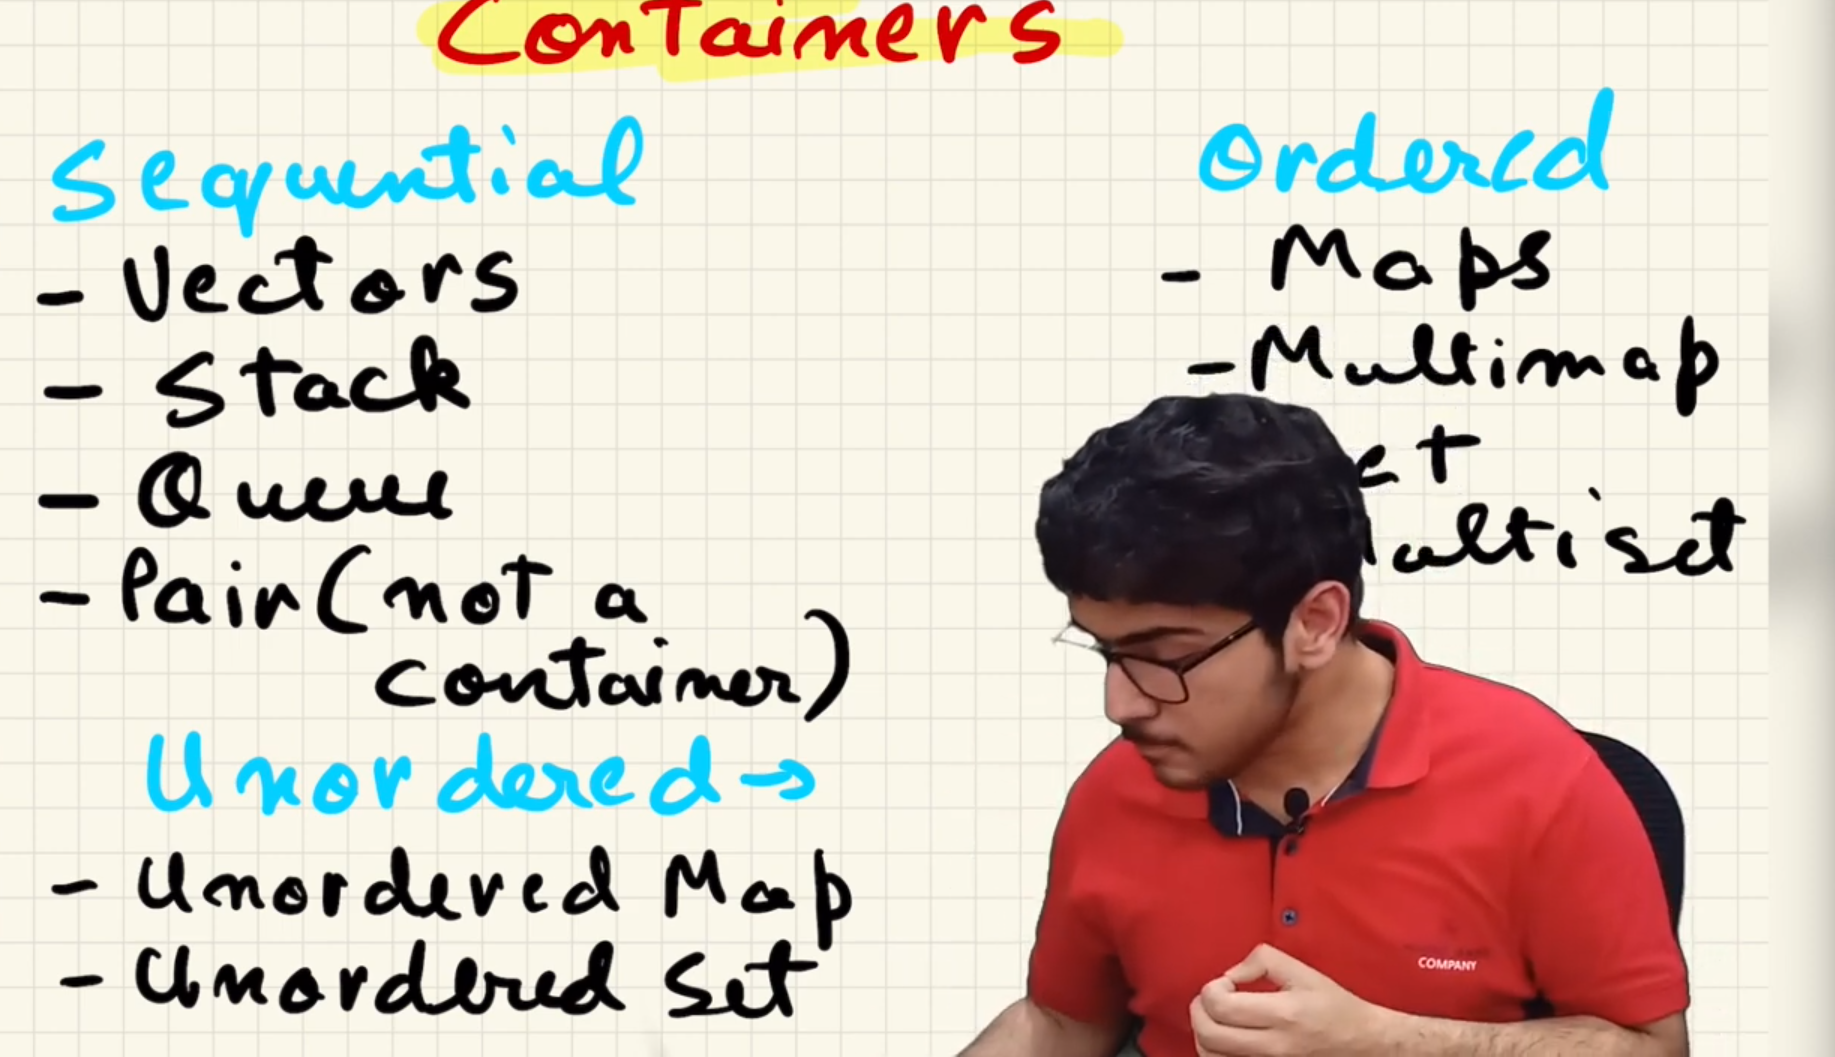 Containers
Sequential
- Vectors
- Stack
- Queue
- Pair (not a
container)
Unordered →
- Unordered Map
- Unordered Set
Ordered
- Maps
- Multimap
et
ultiset
COMPANY